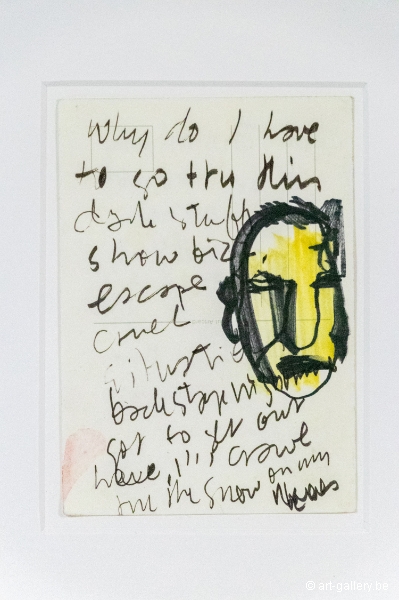 Why do I have
to go tru this
dark stuff
show biz
escape
cruel
situatio
backstage
got to get out
here !!! I crawl
tru the snow on my
knees
© art-gallery.be